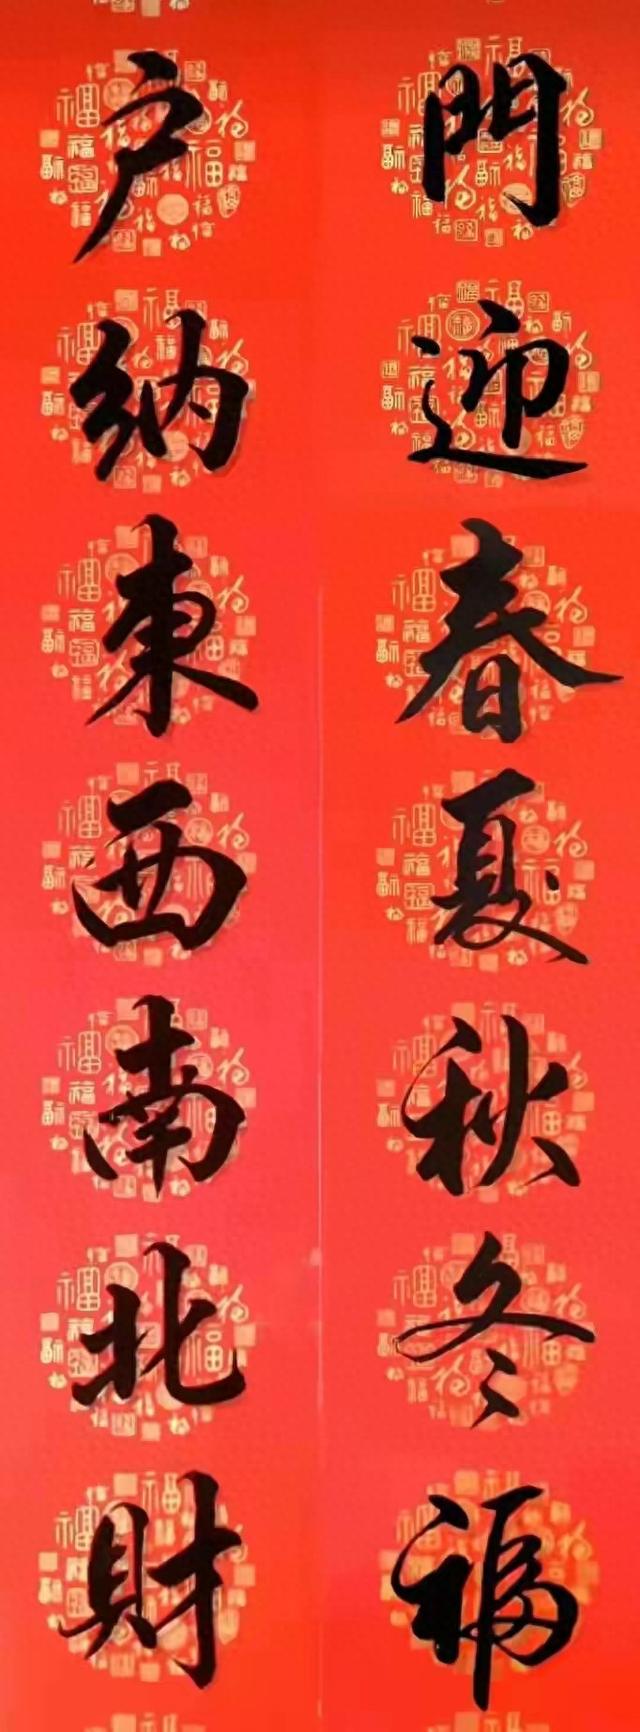 門迎春夏秋冬福
户納東西南北財